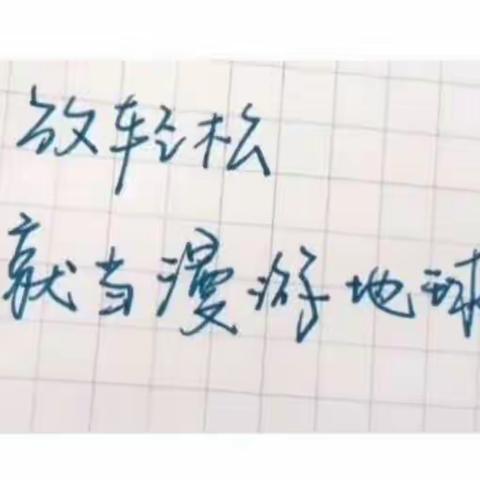 放轻松
就当漫游地球